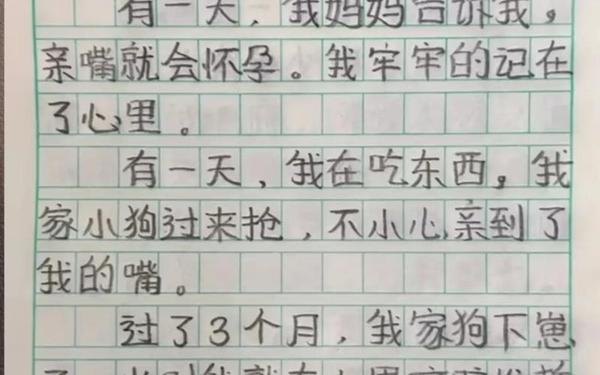 有一天，我妈妈告诉我，
亲嘴就会怀孕。我牢牢的记在
了心里。
有一天，我在吃东西，我
家小狗过来抢，不小心亲到了
我的嘴。
过了3个月，我家狗下崽